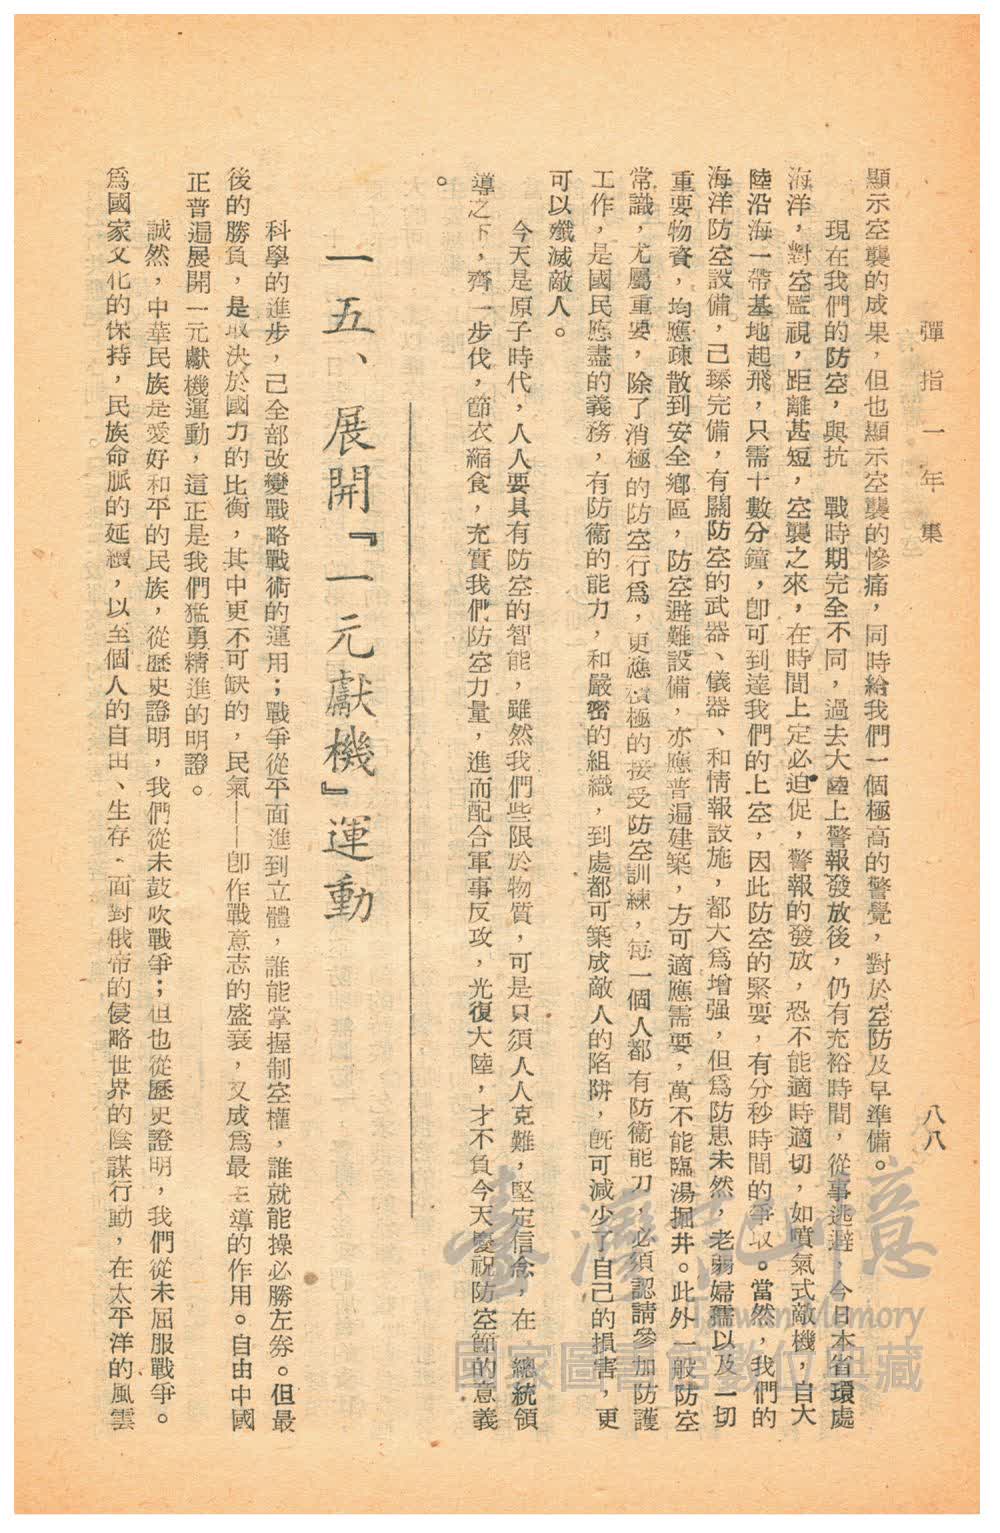 彈指一年集
八八
顯示空襲的成果，但也顯示空襲的慘痛，同時給我們一個極高的警覺，對於空防及早準備。
現在我們的防空，與抗　戰時期完全不同，過去大陸上警報發放後，仍有充裕時間，從事逃避，今日本省環處
海洋，對空監視，距離甚短，空襲之來，在時間上定必迫促，警報的發放，恐不能適時適切，如噴氣式敵機，自大
陸沿海一帶基地起飛，只需十數分鐘，卽可到達我們的上空，因此防空的緊要，有分秒時間的爭取。當然，我們的
海洋防空設備，己臻完備，有關防空的武器、儀器、和情報設施，都大爲增强，但爲防患未然，老弱婦孺以及一切
重要物資，均應疎散到安全鄉區，防空避難設備，亦應普遍建築，方可適應需要，萬不能臨湯掘井。此外一般防空
常識，尤屬重要，除了消極的防空行爲，更應積極的接受防空訓練，每一個人都有防衞能刀，必須認請參加防護
工作，是國民應盡的義務，有防衞的能力，和嚴密的組織，到處都可築成敵人的陷阱，旣可減少了自己的損害，更
可以殲滅敵人。
今天是原子時代，人人要具有防空的智能，雖然我們些限於物質，可是只須人人克難，堅定信念，在　總統領
導之下，齊一步伐，節衣縮食，充實我們防空力量，進而配合軍事反攻，光復大陸，才不負今天慶祝防空節的意義
。
一五、展開『一元獻機』運動
科學的進步，己全部改變戰略戰術的運用；戰爭從平面進到立體，誰能掌握制空權，誰就能操必勝左券。但最
後的勝負，是取決於國力的比衡，其中更不可缺的，民氣——卽作戰意志的盛衰，又成爲最主導的作用。自由中國
正普遍展開一元獻機運動，這正是我們猛勇精進的明證。
誠然，中華民族是愛好和平的民族，從歷史證明，我們從未鼓吹戰爭；但也從歷史證明，我們從未屈服戰爭。
爲國家文化的保持，民族命脈的延續，以至個人的自由、生存、面對俄帝的侵略世界的陰謀行動，在太平洋的風雲
臺灣記憶
Taiwan Memory
國家圖書館數位典藏